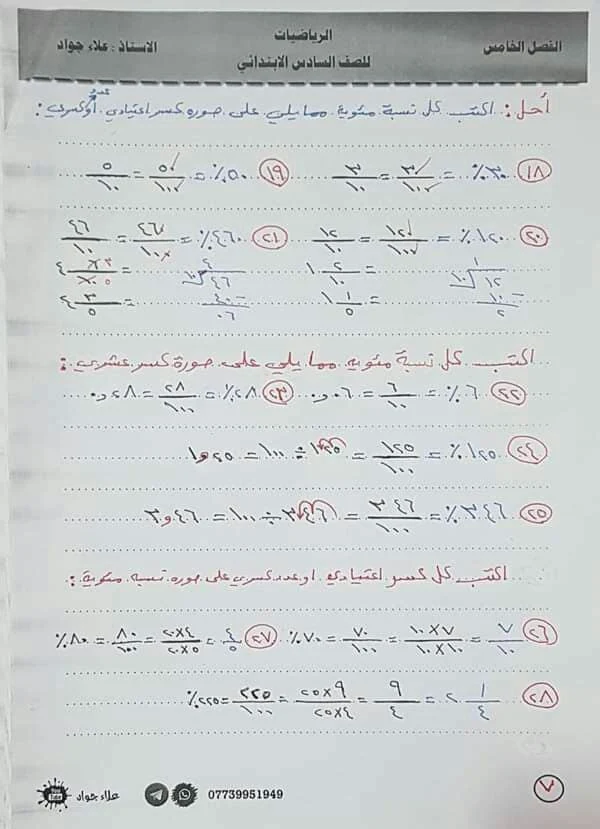 الفصل الخامس
الرياضيات
للصف السادس الابتدائي
الاستاذ : علاء جواد
أحل : اكتب كل نسبة مئوية مما يلي على صورة كسر اعتيادي أو عدد كسري :
١٨ ٪٣٠ = ٣٠/١٠٠ = ٣/١٠ ١٩ ٪٥٠ = ٥٠/١٠٠ = ٥/١٠
٢٠ ٪١٢٠ = ١٢٠/١٠٠ = ١٢/١٠ ٢١ ٪٤٦٠ = ٤٦٠/١٠٠ = ٤٦/١٠
= ١ ٢/١٠ = ٤ ٦/١٠
= ١ ١/٥ = ٤ ٣/٥
اكتب كل نسبة مئوية مما يلي على صورة كسر عشري :
٢٢ ٪٦ = ٦/١٠ = ٠٦و٠ ٢٣ ٪٢٨ = ٢٨/١٠٠ = ٢٨و٠
٢٤ ٪١٢٥ = ١٢٥/١٠٠ = ١٢٥ ÷ ١٠٠ = ٢٥و١
٢٥ ٪٣٤٦ = ٣٤٦/١٠٠ = ٣٤٦ ÷ ١٠٠ = ٤٦و٣
اكتب كل كسر اعتيادي او عدد كسري على صورة نسبة مئوية :
٢٦ ٧/١٠ = ١٠×٧/١٠×١٠ = ٧٠/١٠٠ = ٪٧٠ ٢٧ ٤/٥ = ٢٠×٤/٢٠×٥ = ٨٠/١٠٠ = ٪٨٠
٢٨ ٢ ١/٤ = ٩/٤ = ٢٥×٩/٢٥×٤ = ٢٢٥/١٠٠ = ٪٢٢٥
٧
07739951949
علاء جواد
You Tube